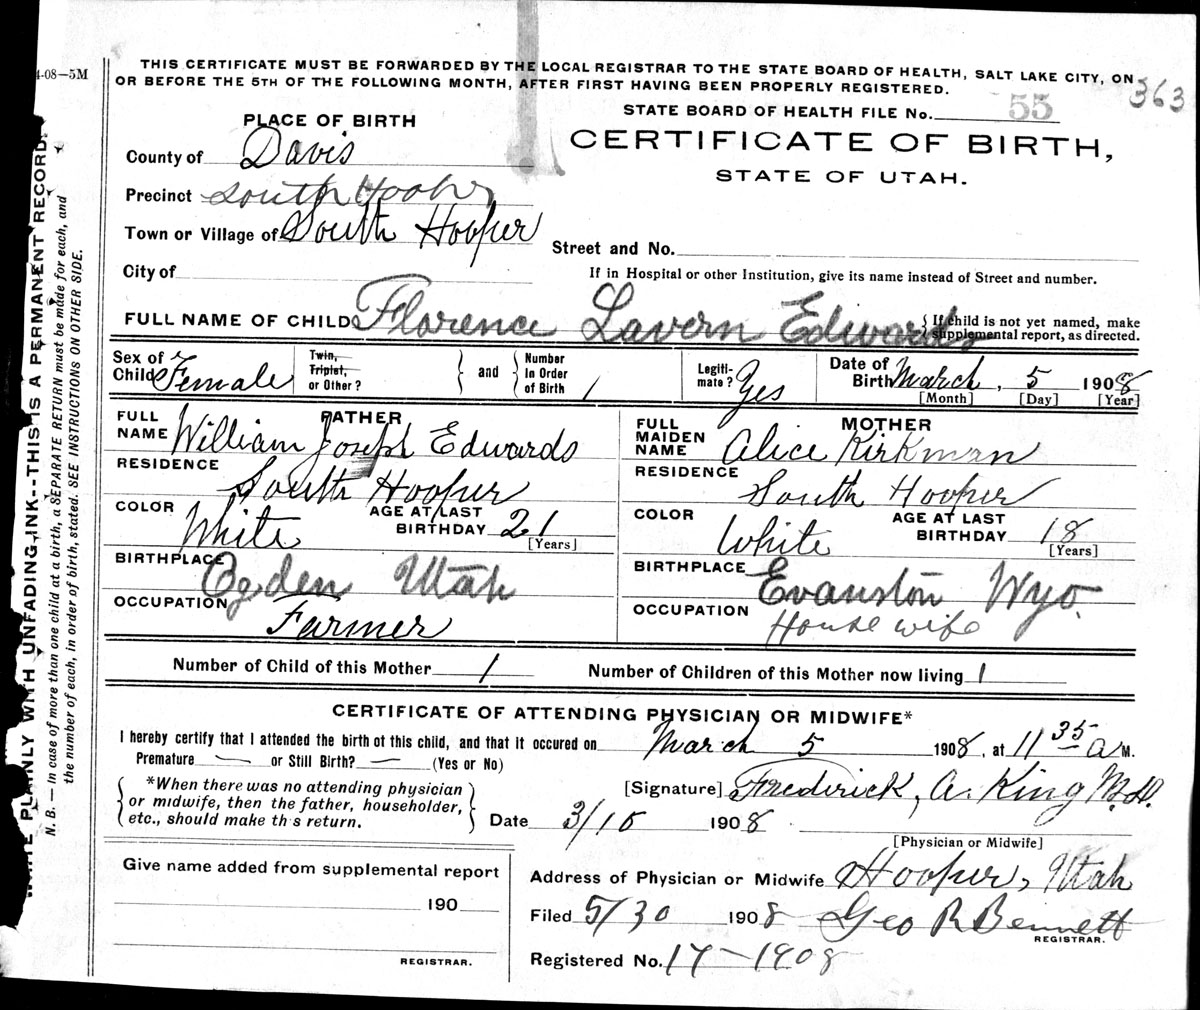 4-08—5M
THIS CERTIFICATE MUST BE FORWARDED BY THE LOCAL REGISTRAR TO THE STATE BOARD OF HEALTH, SALT LAKE CITY, ON
OR BEFORE THE 5TH OF THE FOLLOWING MONTH, AFTER FIRST HAVING BEEN PROPERLY REGISTERED.
363
STATE BOARD OF HEALTH FILE No. 55
PLACE OF BIRTH
CERTIFICATE OF BIRTH,
STATE OF UTAH.
County of Davis
Precinct South Hooper
Town or Village of South Hooper
Street and No.
City of
If in Hospital or other Institution, give its name instead of Street and number.
FULL NAME OF CHILD Florence Lavern Edwards { If child is not yet named, make
supplemental report, as directed.
Sex of Child Female
Twin, Triplet, or Other? } and { Number In Order of Birth 1
Legiti-mate? Yes
Date of Birth March, 5 1908
[Month] [Day] [Year]
FATHER
FULL NAME William Joseph Edwards
RESIDENCE
South Hooper
COLOR White AGE AT LAST BIRTHDAY 21
[Years]
BIRTHPLACE Ogden Utah
OCCUPATION Farmer
MOTHER
FULL MAIDEN NAME Alice Kirkman
RESIDENCE
South Hooper
COLOR White AGE AT LAST BIRTHDAY 18
[Years]
BIRTHPLACE Evanston Wyo.
OCCUPATION House wife
Number of Child of this Mother 1 Number of Children of this Mother now living 1
CERTIFICATE OF ATTENDING PHYSICIAN OR MIDWIFE*
I hereby certify that I attended the birth of this child, and that it occured on March 5 1908, at 11 35 a M.
Premature — or Still Birth? — (Yes or No)
{ *When there was no attending physician
or midwife, then the father, householder,
etc., should make this return. }
[Signature] Frederick, A. King M.D.
Date 3/10 1908
[Physician or Midwife]
Give name added from supplemental report
190
REGISTRAR.
Address of Physician or Midwife Hooper, Utah
Filed 5/30 1908 Geo R Bennett
REGISTRAR.
Registered No. 17—1908
WRITE PLAINLY WITH UNFADING INK--THIS IS A PERMANENT RECORD.
N. B. — In case of more than one child at a birth, a SEPARATE RETURN must be made for each, and
the number of each, in order of birth, stated. SEE INSTRUCTIONS ON OTHER SIDE.